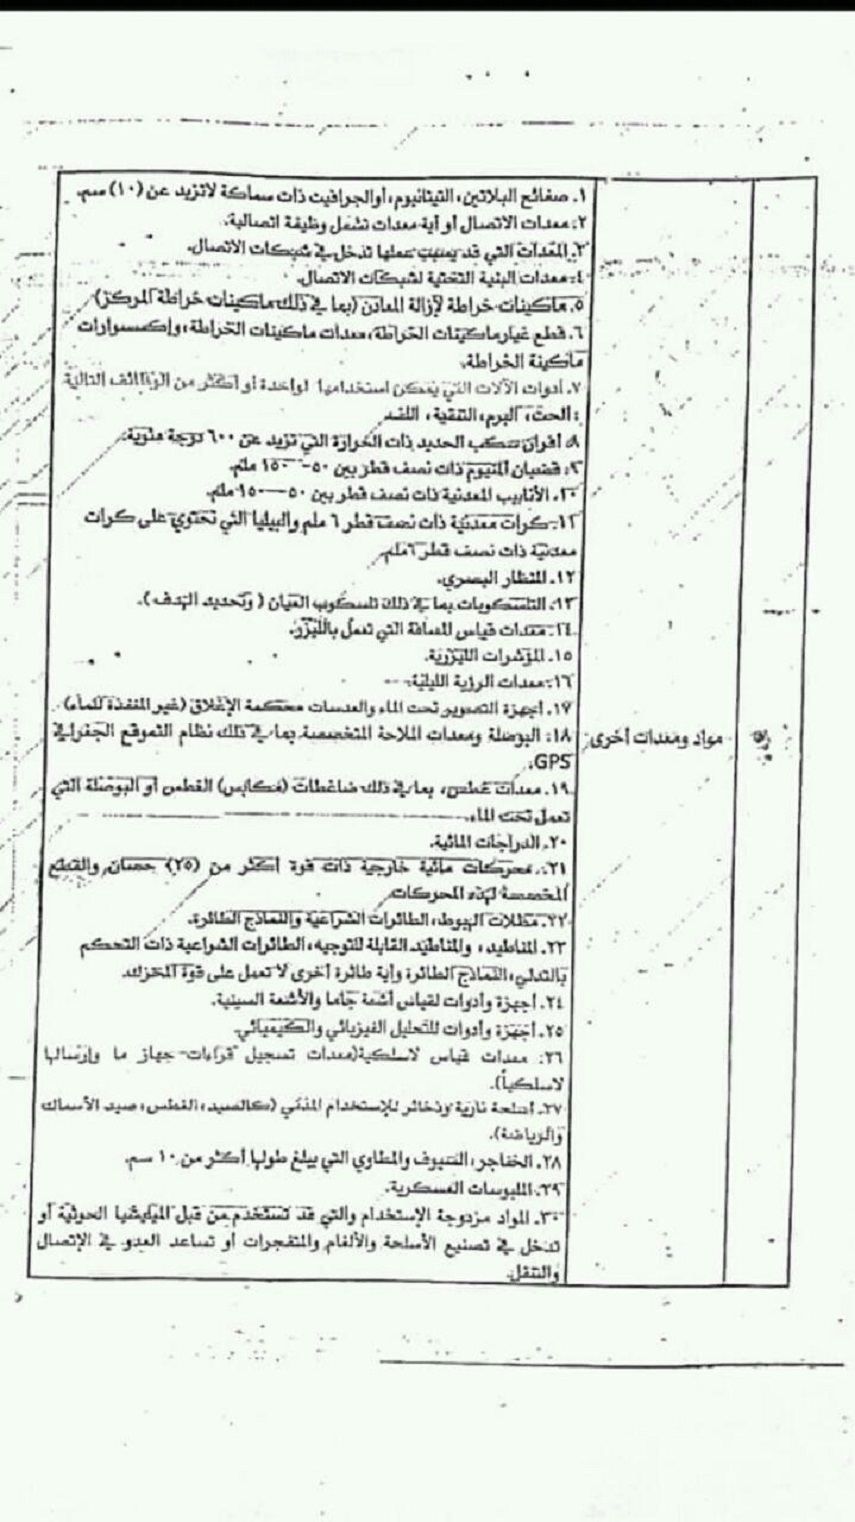 ١. صفائح البلاتين، التيتانيوم، أوالجرافيت ذات سماكة لاتزيد عن (١٠) سم.
٢. معدات الاتصال أو أية معدات تشمل وظيفة اتصالية.
٣. المعدات التي قد يسبب عملها تدخل في شبكات الاتصال.
٤. معدات البنية التحتية لشبكات الاتصال.
٥. ماكينات خراطة لإزالة المعادن (بما في ذلك ماكينات خراطة المركز)
٦. قطع غيار ماكينات الخراطة، معدات ماكينات الخراطة، وإكسسوارات
ماكينة الخراطة.
٧. أدوات الآلات التي يمكن استخدامها لواحدة أو أكثر من الوظائف التالية
: الحت، البرم، التنقية، اللف
٨. أفران سكب الحديد ذات الحرارة التي تزيد عن ٦٠٠ درجة مئوية.
٩. قضبان ذات نصف قطر بين ٥٠- ١٥٠ ملم.
١٠. الأنابيب المعدنية ذات نصف قطر بين ٥٠-١٥٠ ملم.
١١. كرات معدنية ذات نصف قطر ٦ ملم والبيليا التي تحتوي على كرات
معدنية ذات نصف قطر ٦ملم.
١٢. المنظار البصري.
١٣. التلسكوبات بما في ذلك تلسكوب العيان ( وتحديد الهدف).
١٤. معدات قياس المسافة التي تعمل بالليزر.
١٥. المؤشرات الليزرية.
١٦. معدات الرؤية الليلية.
١٧. أجهزة التصوير تحت الماء والعدسات محكمة الإغلاق (غير المنفذة للماء).
١٨. البوصلة ومعدات الملاحة المتخصصة بما في ذلك نظام التموقع الجغرافي
GPS.
مواد ومعدات أخرى
١٩. معدات غطس، بما في ذلك ضاغطات (مكابس) الغطس أو البوصلة التي
تعمل تحت الماء.
٢٠. الدراجات المائية.
٢١. محركات مائية خارجية ذات قوة أكثر من (٢٥) حصان والقطع
المخصصة لهذه المحركات
٢٢. مظلات الهبوط، الطائرات الشراعية والنماذج الطائرة.
٢٣. المناطيد، والمناطيد القابلة للتوجيه، الطائرات الشراعية ذات التحكم
بالتدلي، النماذج الطائرة وأية طائرة أخرى لا تعمل على قوة المحرك.
٢٤. أجهزة وأدوات لقياس أشعة جاما والأشعة السينية.
٢٥. أجهزة وأدوات للتحليل الفيزيائي والكيميائي.
٢٦. معدات قياس لاسلكية(معدات تسجيل قراءات جهاز ما وإرسالها
لاسلكياً).
٢٧. أسلحة نارية وذخائر للإستخدام المدني (كالصيد، الغطس، صيد الأسماك
والرياضة).
٢٨. الخناجر، السيوف والمطاوي التي يبلغ طولها أكثر من ١٠ سم.
٢٩. الملبوسات العسكرية.
٣٠. المواد مزدوجة الإستخدام والتي قد تستخدم من قبل الميليشيا الحوثية أو
تدخل في تصنيع الأسلحة والألغام والمتفجرات أو تساعد العدو في الإتصال
والتنقل.